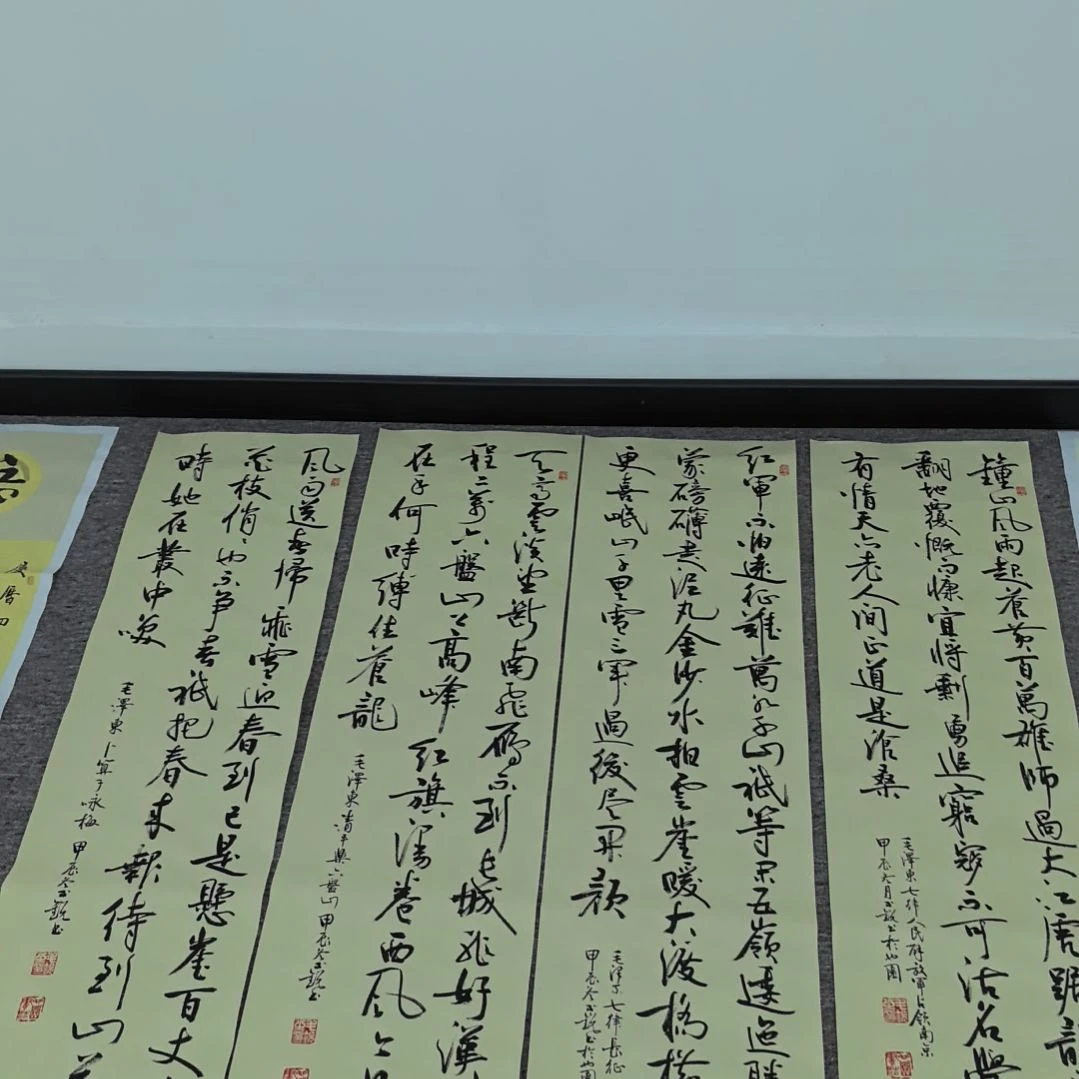 鐘山风雨起蒼黄百萬雄師過大江虎踞
翻地覆慨而慷宜將剩勇追窮寇不可沽名學
有情天亦老人间正道是滄桑
毛澤東七律人民解放軍占領南京
甲辰冬月
红軍不怕遠征難萬水千山祗等闲五嶺逶迤騰
濛磅礴走泥丸金沙水拍雲崖暖大渡橋横
更喜岷山千里雪三軍過後尽开颜
毛澤东七律長征
甲辰冬
天高雲淡望斷南飛雁不到長城非好漢
程二萬六盤山上高峰红旗漫卷西风今
在手何時縛住蒼龍
毛澤東清平樂六盤山甲辰冬
风雨送春歸飛雪迎春到已是懸崖百丈
花枝俏俏也不争春祗把春来報待到山花
時她在叢中笑
毛澤東卜算子咏梅甲辰冬